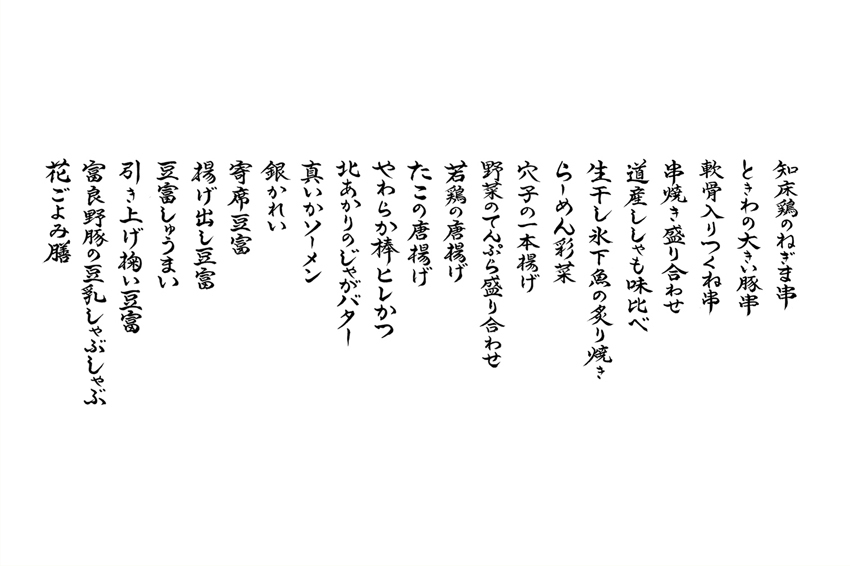 知床鶏のねぎま串
ときわの大きい豚串
軟骨入りつくね串
串焼き盛り合わせ
道産ししゃも味比べ
生干し氷下魚の炙り焼き
らーめん彩菜
穴子の一本揚げ
野菜のてんぷら盛り合わせ
若鶏の唐揚げ
たこの唐揚げ
やわらか棒ヒレかつ
北あかりのじゃがバター
真いかソーメン
銀かれい
寄席豆富
揚げ出し豆富
豆富しゅうまい
引き上げ掬い豆富
富良野豚の豆乳しゃぶしゃぶ
花ごよみ膳